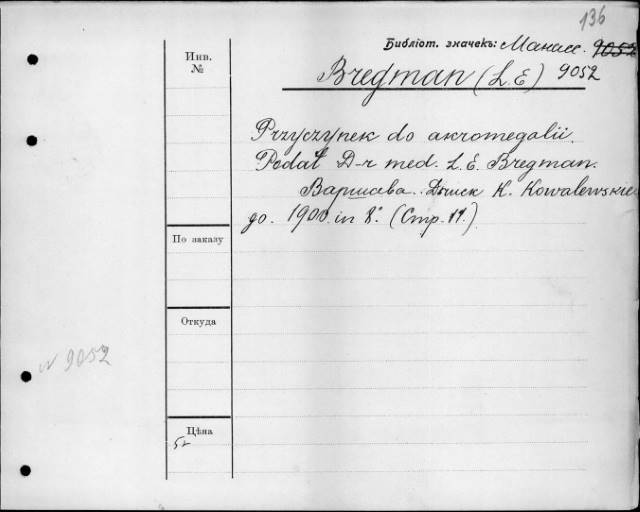 136
Библіот. значекъ: Манасс. 9052
Bregman (L. E) 9052
Инв.
№
Przyczynek do akromegalii.
Podał D-r med. L. E. Bregman.
Варшава. Druck K. Kowalewskie
go. 1900. in 8°. (Стр. 11.)
По заказу
Откуда
N 9052
Цѣна